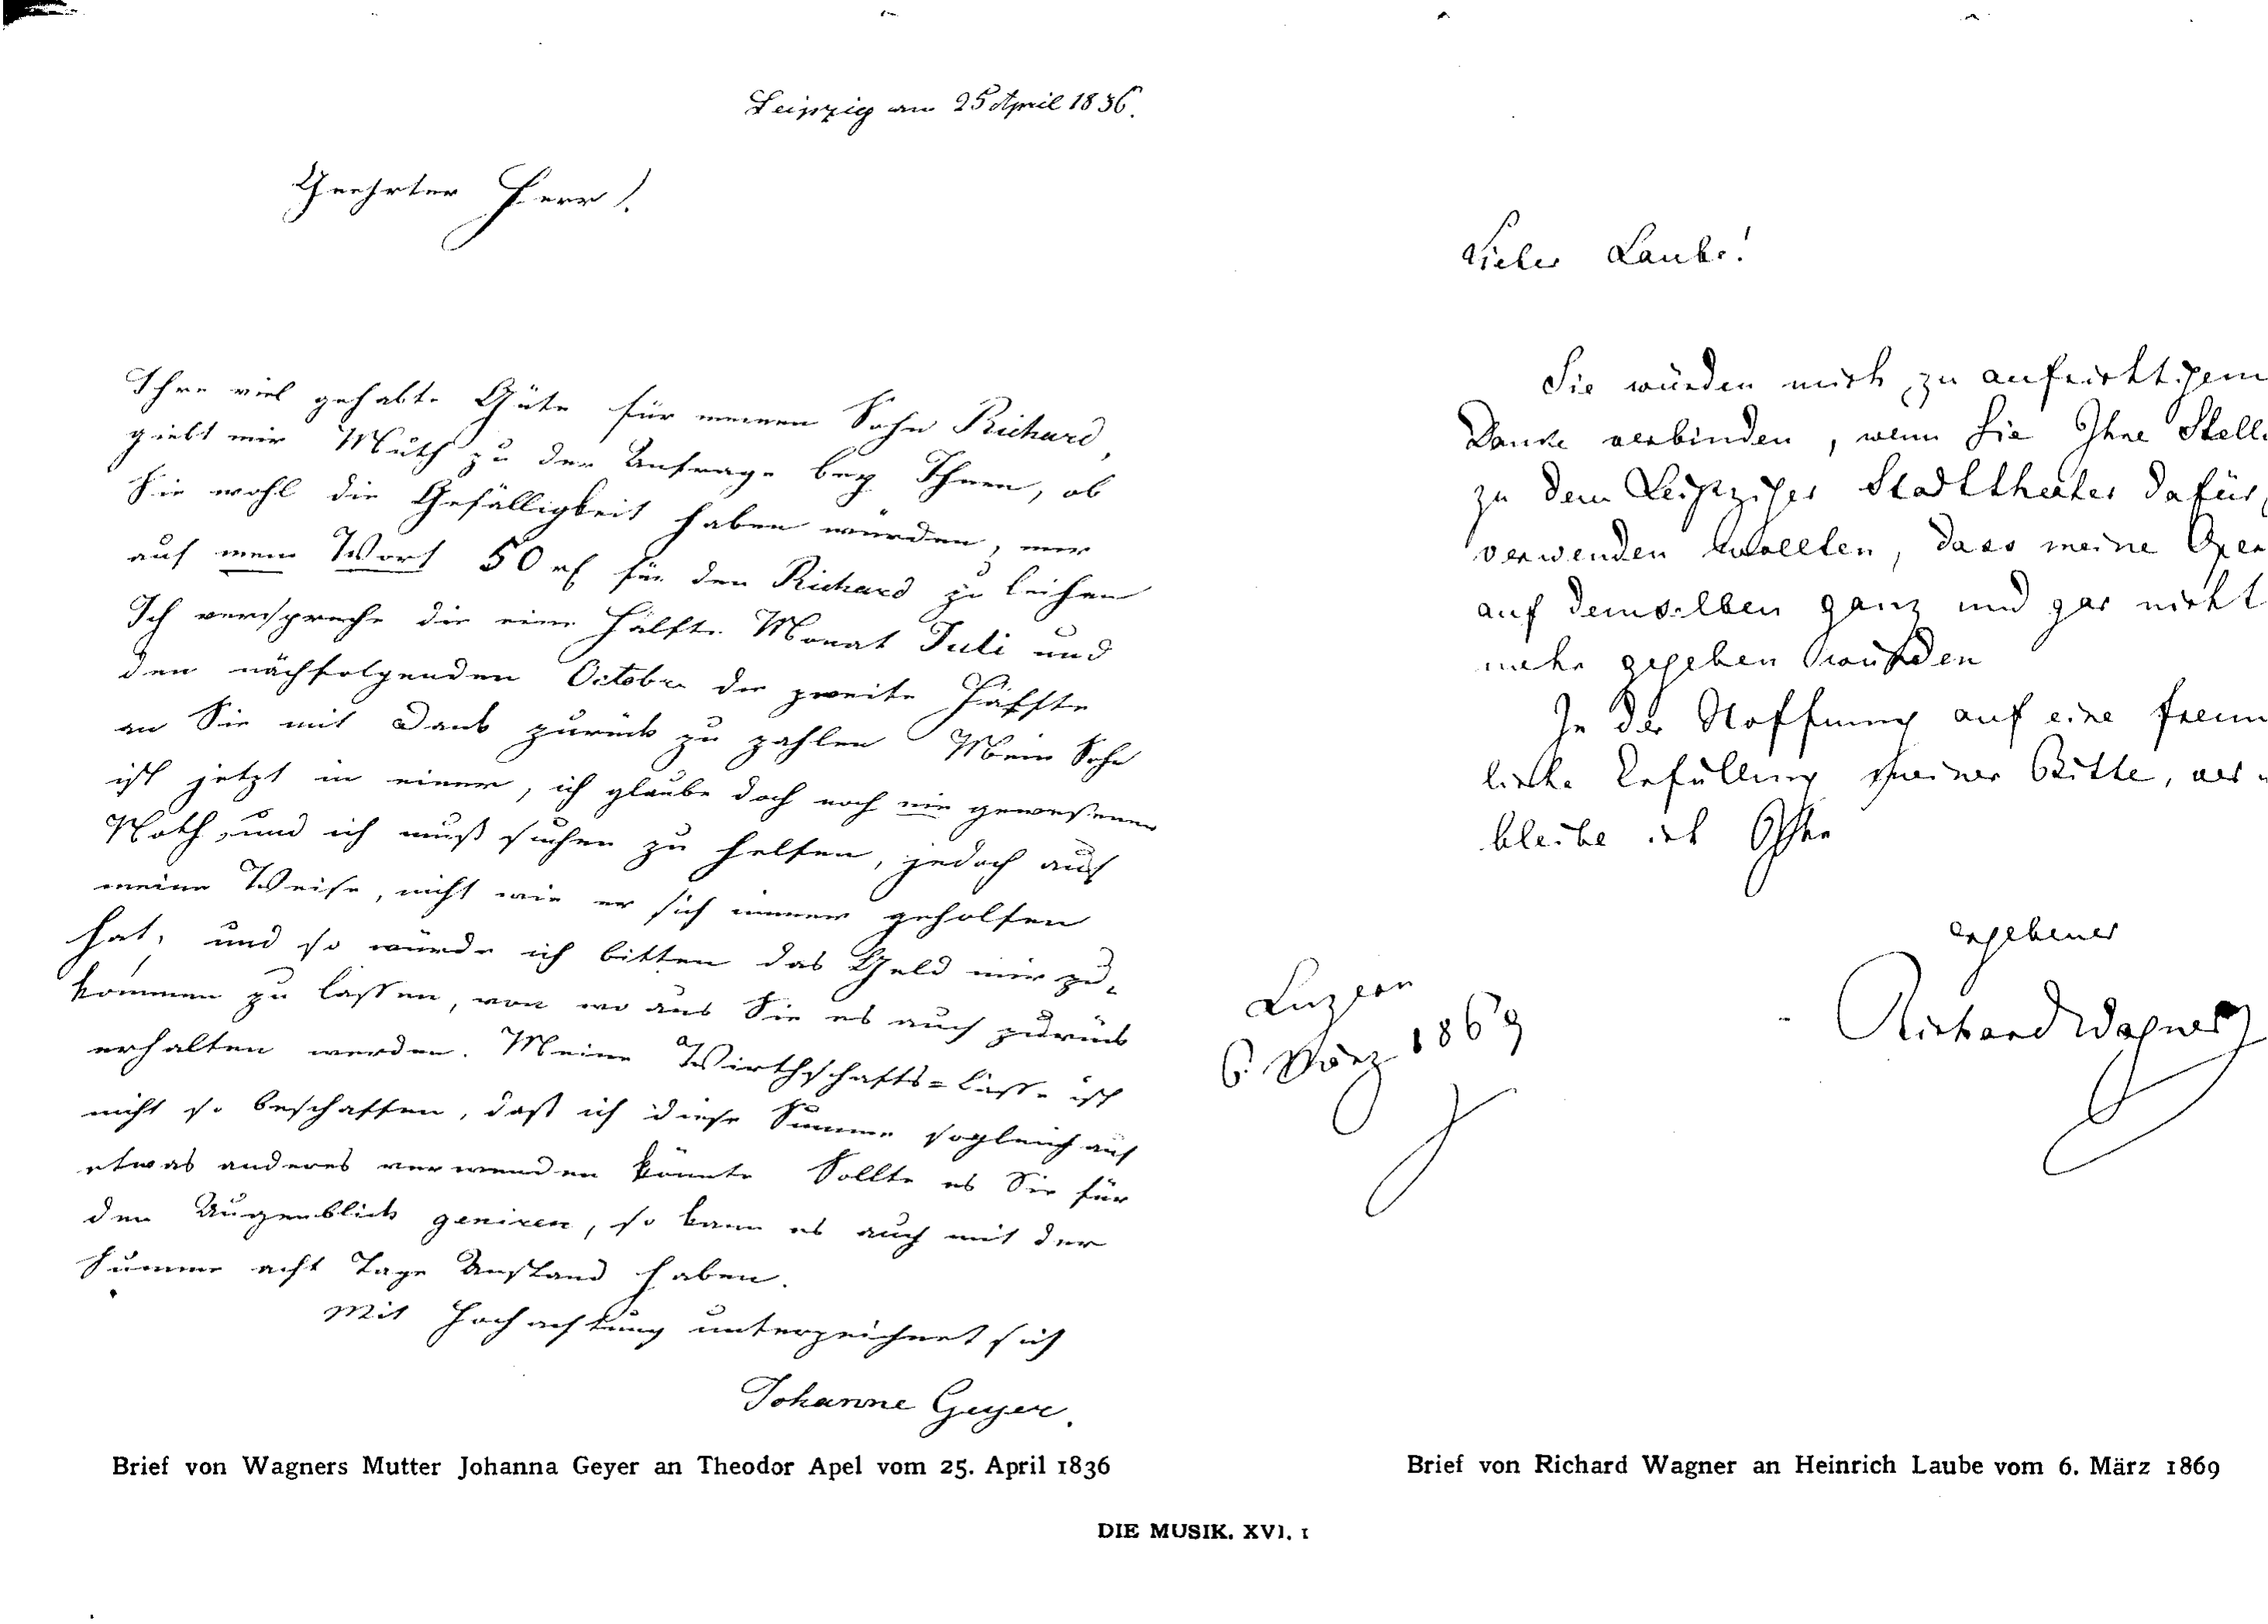 Leipzig am 25 April 1836.
Geehrter Herr!
Ihre viel gehabte Güte für meinen Sohn Richard,
giebt mir Muth zu der Anfrage bey Ihnen, ob
Sie wohl die Gefälligkeit haben würden, mir
auf mein Wort 50 rf für den Richard zu leihen
Ich verspreche die eine Hälfte Monat Juli und
den nächfolgenden Octobre die zweite Hälfte
an Sie mit Dank zurück zu zahlen Mein Sohn
ist jetzt in einer, ich glaube doch noch nie gewesenen
Noth, und ich muß suchen zu helfen, jedoch auf
meine Weise, nicht wie er sich immer geholfen
hat, und so würde ich bitten das Geld mir zu-
kommen zu lassen, von wo aus Sie es auch zurück
erhalten werden. Meine Wirthschafts=Casse ist
nicht so beschaffen, daß ich diese Summe sogleich auf
etwas anderes verwenden könnte Sollte es Sie für
den Augenblick geniren, so kann es auch mit der
Summe acht Tage Anstand haben.
Mit Hochachtung unterzeichnet sich
Johanne Geyer.
Brief von Wagners Mutter Johanna Geyer an Theodor Apel vom 25. April 1836
Lieber Laube!
Sie würden mich zu aufrichtigem
Danke verbinden, wenn Sie Ihre Stell
zu dem Leipziger Stadttheater dafür
verwenden wollten, dass meine Oper
auf demselben ganz und gar nicht
mehr gegeben würden
In der Hoffnung auf eine freun
liche Erfüllung meiner Bitte, ver
bleibe ich Ihr
ergebener
Richard Wagner
Luzern
6. März 1869
Brief von Richard Wagner an Heinrich Laube vom 6. März 1869
DIE MUSIK. XVI. 1